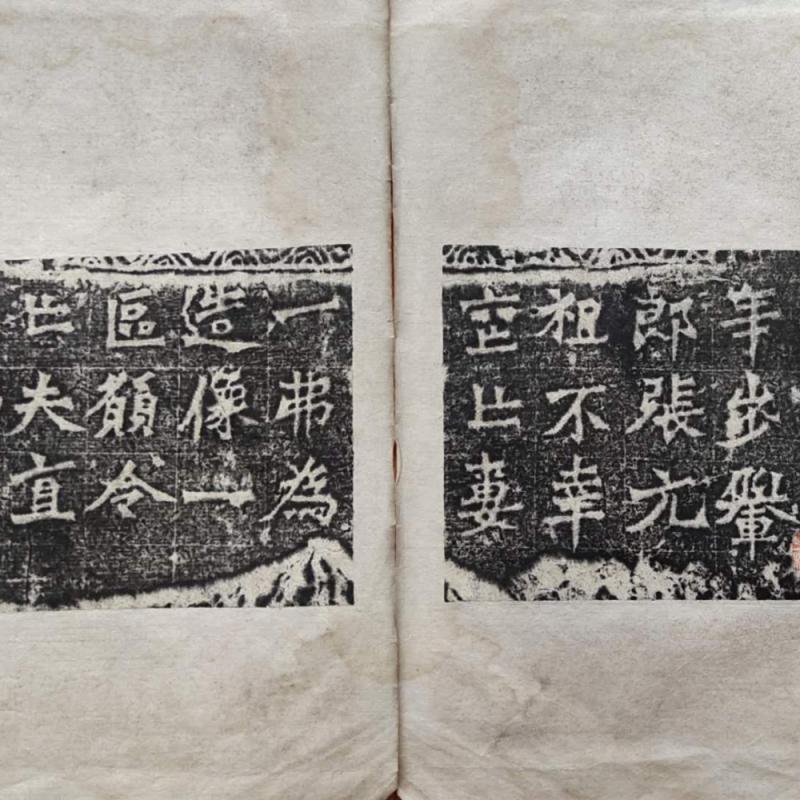 年步轝
郎張元
祖不幸
喪亡妻
一弗為
造像一
區願令
亡夫直